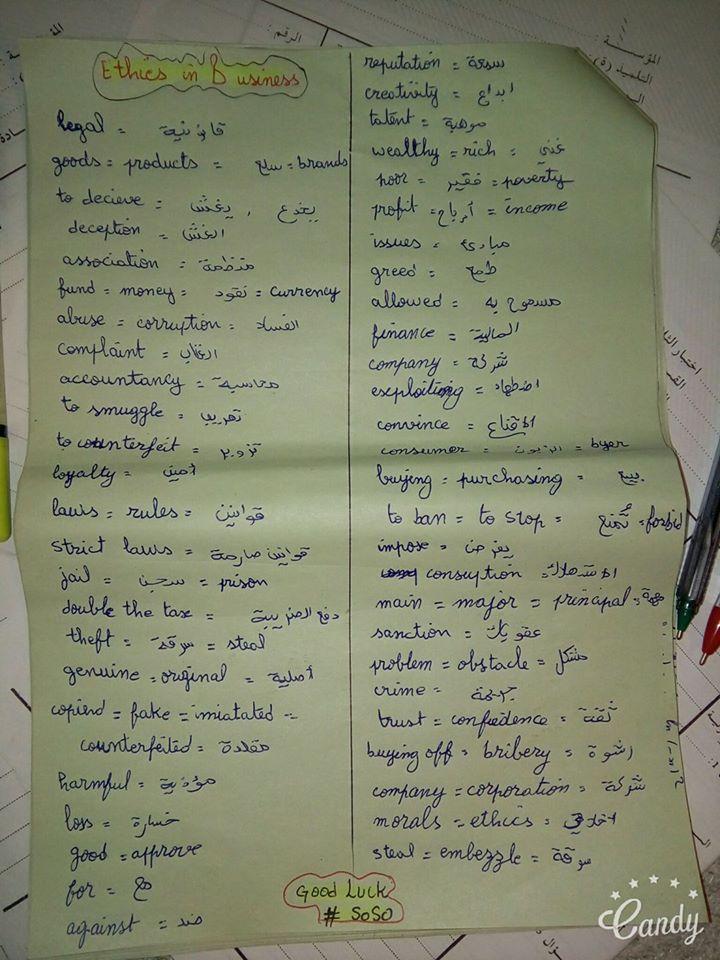 Ethics in Business
legal = قانونية
goods = products = سلع = brands
to decieve = يغش , يخدع
deception = الغش
association = منظمة
fund = money = نقود = currency
abuse = corruption = الفساد
complaint =
accountancy = محاسبة
to smuggle = تهريب
to counterfeit = تزوير
loyalty = أمين
laws = rules = قوانين
strict laws = قوانين صارمة
jail = سجن = prison
double the tax = دفع الضريبة
theft = سرقة = steal
genuine = original = أصلية
copierd = fake = imiatated =
counterfeited = مقلدة
harmful = مؤذية
loss = خسارة
good = approve
for = مع
against = ضد
reputation = سمعة
creativity = ابداع
talent = موهبة
wealthy = rich = غني
poor = فقير = poverty
profit = أرباح = income
issues = مبادئ
greed = طمع
allowed = مسموح به
finance = المالية
company = شركة
exploiting = اضطهاد
convince = الاقناع
consumer = الزبون = byer
buying = purchasing = بيع
to ban = to stop = تُمنع = forbid
impose = يفرض
consuption =
main = major = principal = مهمة
sanction = عقوبات
problem = obstacle = مشكل
crime = جريمة
trust = confiedence = ثقة
buying off = bribery = رشوة
company = corporation = شركة
morals = ethics = اخلاق
steal = embezzle = سرقة
Good Luck
# SOSO
Candy